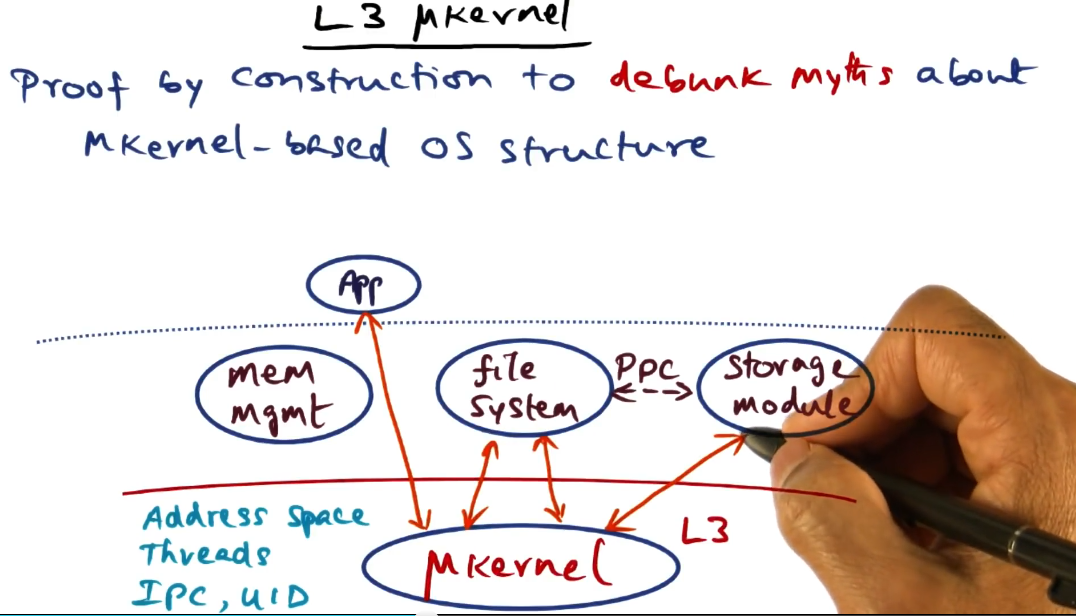 L3 µkernel
Proof by construction to debunk myths about
µkernel-based OS structure
App
mem
mgmt
file
system
PPC
storage
module
Address space
Threads
IPC, UID
µkernel
L3